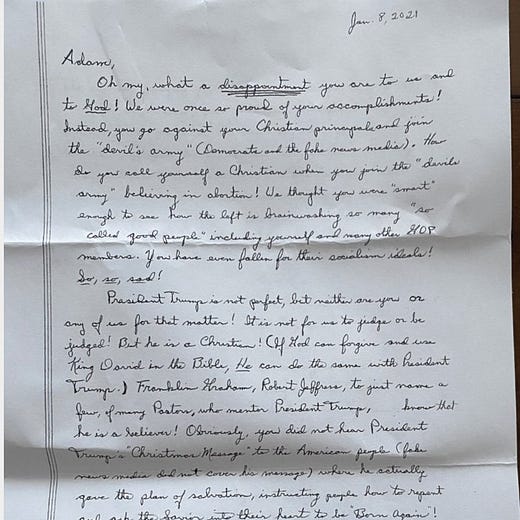 Jan. 8, 2021
Adam,
Oh my, what a disappointment you are to us and
to God! We were once so proud of your accomplishments!
Instead, you go against your Christian principals and join
the "devil's army" (Democrats and the fake news media). How
do you call yourself a Christian when you join the "devils
army" believing in abortion! We thought you were "smart"
enough to see how the left is brainwashing so many "so
called good people" including yourself and many other GOP
members. You have even fallen for their socialism ideals!
So, so, sad!
President Trump is not perfect, but neither are you or
any of us for that matter! It is not for us to judge or be
judged! But he is a Christian! (If God can forgive and use
King David in the Bible, He can do the same with President
Trump.) Franklin Graham, Robert Jeffress, to just name a
few, of many Pastors, who mentor President Trump, know that
he is a believer! Obviously, you did not hear President
Trump's "Christmas Message" to the American people (fake
news media did not cover his message) where he actually
gave the plan of salvation, instructing people how to repent
and ask the Savior into their heart to be "Born Again"!